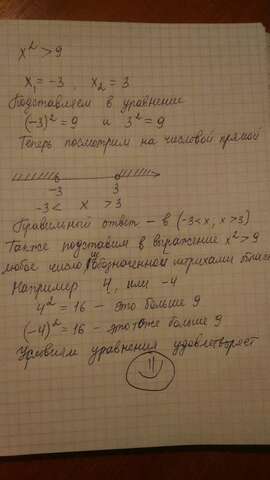 x² > 9
x₁ = -3, x₂ = 3
Подставляем в уравнение
(-3)² = 9 и 3² = 9
Теперь посмотрим на числовой прямой
-3 3
-3 < x > 3
Правильный ответ - в (-3 < x, x > 3)
Также подставим в выражение x² > 9
любое число из обозначенной штрихами
Например 4, или -4
4² = 16 - это больше 9
(-4)² = 16 - это тоже больше 9
Условиям уравнения удовлетворяет